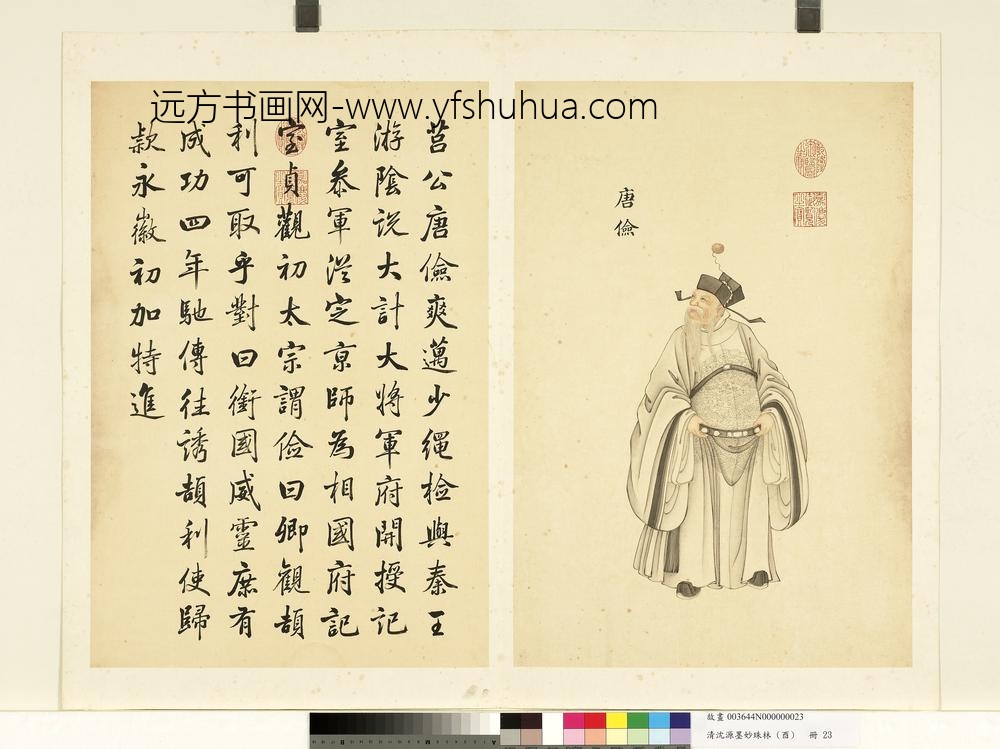 远方书画网-www.yfshuhua.com
唐儉
莒公唐儉爽邁少繩检與秦王
游陰説大計大将軍府開授記
室叅軍從定京師為相國府記
室貞觀初太宗謂儉曰卿觀頡
利可取乎對曰銜國威靈庶有
成功四年馳傳往誘頡利使歸
款永徽初加特進
故畫 003644N000000023
清沈源墨妙珠林（酉） 冊 23